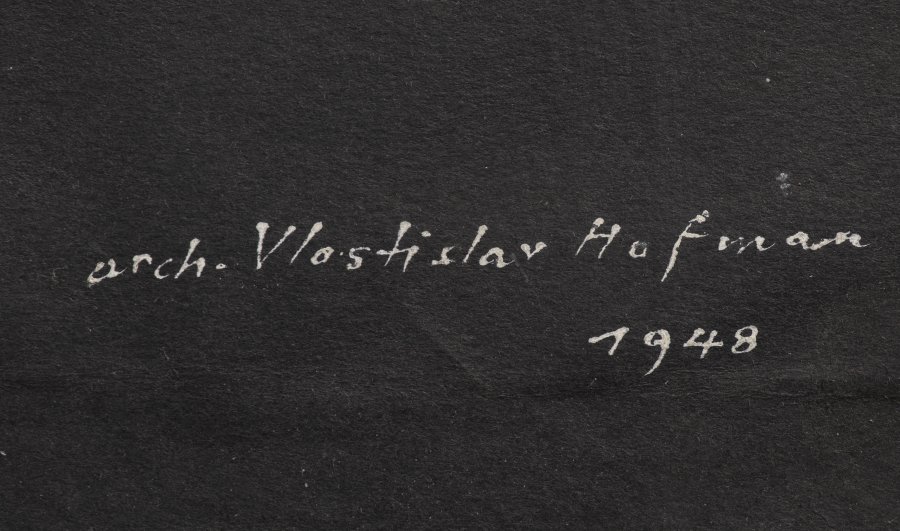 arch. Vlastislav Hofman
1948